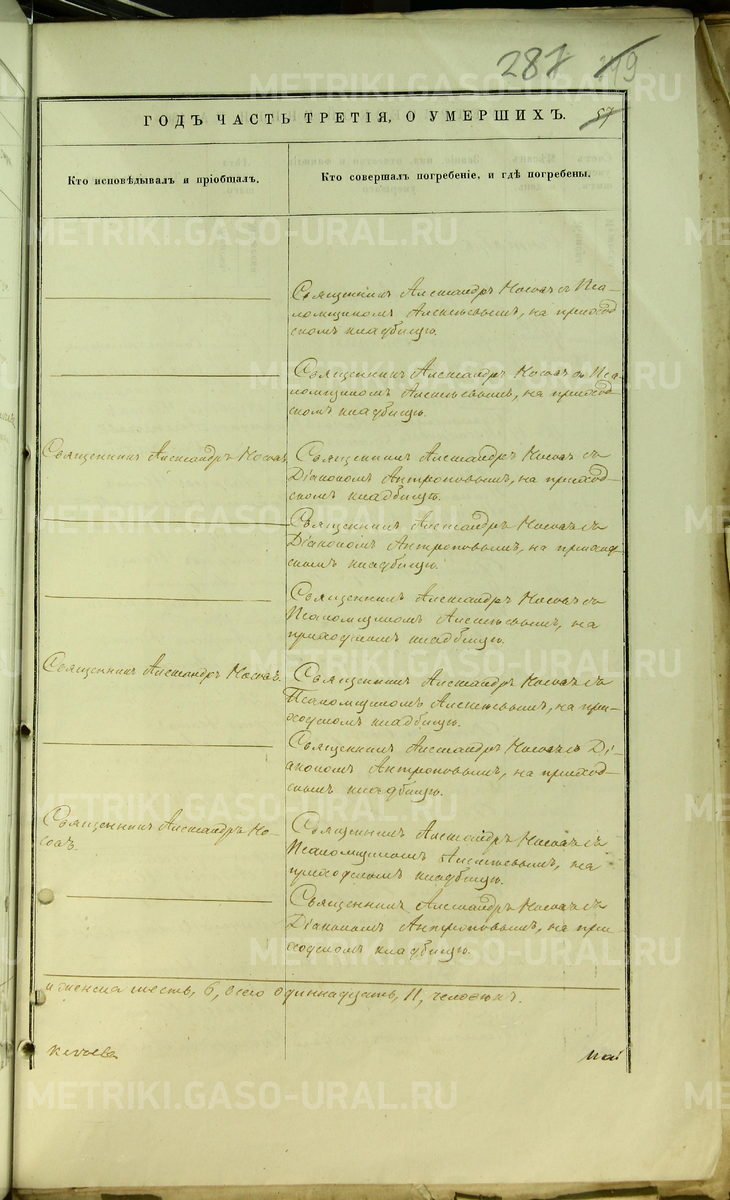 287 119
ГОДЪ ЧАСТЬ ТРЕТІЯ, О УМЕРШИХЪ.
57
Кто исповѣдывалъ и пріобщалъ.
Кто совершалъ погребеніе, и гдѣ погребены.
Священникъ Александръ Носовъ съ Пса-
ломщикомъ Алексѣевымъ, на приход-
скомъ кладбищѣ.
Священникъ Александръ Носовъ съ Пса-
ломщикомъ Алексѣевымъ, на приход-
скомъ кладбищѣ.
Священникъ Александръ Носовъ.
Священникъ Александръ Носовъ съ
Діакономъ Антроповымъ, на приход-
скомъ кладбищѣ.
Священникъ Александръ Носовъ съ
Діакономъ Антроповымъ, на приход-
скомъ кладбищѣ.
Священникъ Александръ Носовъ съ
Псаломщикомъ Алексѣевымъ, на
приходскомъ кладбищѣ.
Священникъ Александръ Носовъ.
Священникъ Александръ Носовъ съ
Псаломщикомъ Алексѣевымъ, на при-
ходскомъ кладбищѣ.
Священникъ Александръ Носовъ съ Ді-
акономъ Антроповымъ, на приход-
скомъ кладбищѣ.
Священникъ Александръ Но-
совъ.
Священникъ Александръ Носовъ съ
Псаломщикомъ Алексѣевымъ, на
приходскомъ кладбищѣ.
Священникъ Александръ Носовъ съ
Діакономъ Антроповымъ, на при-
ходскомъ кладбищѣ.
и женска шесть, 6, всего одиннадцать, 11, человѣкъ.
METRIKI.GASO-URAL.RU